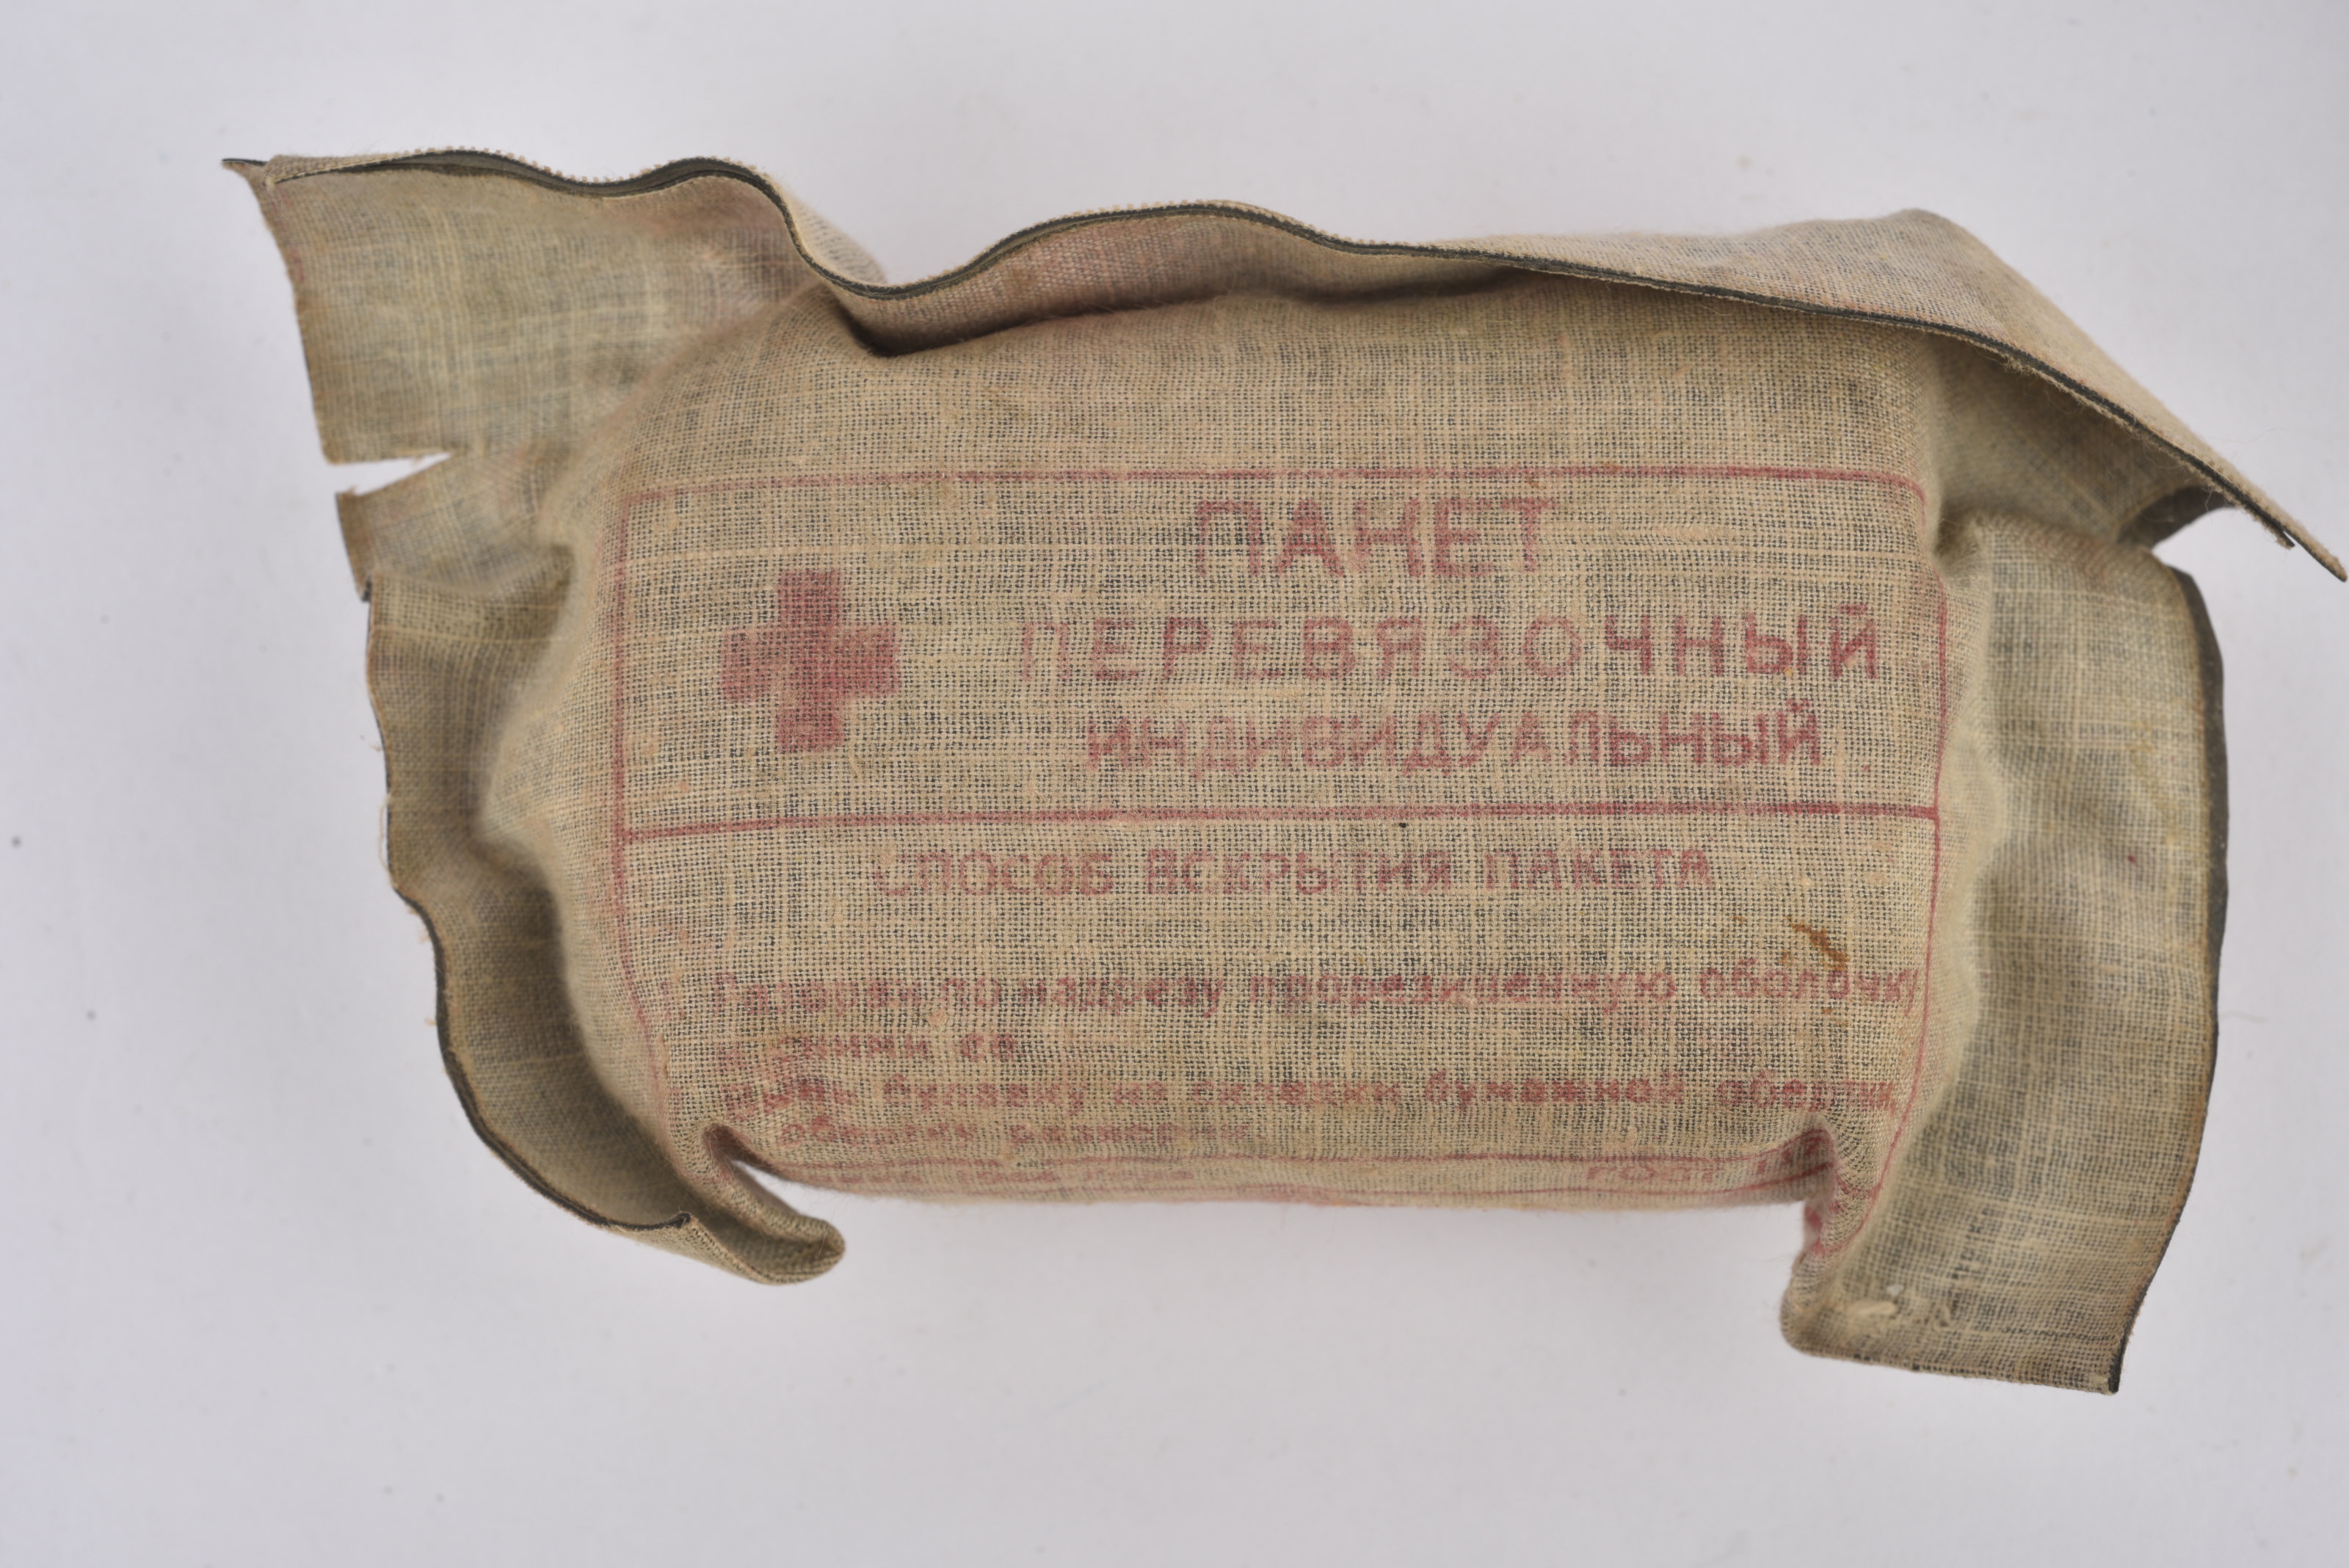 ПАКЕТ
ПЕРЕВЯЗОЧНЫЙ
ИНДИВИДУАЛЬНЫЙ
СПОСОБ ВСКРЫТИЯ ПАКЕТА
по надрезу прорезиненную оболочку
и сними ее
булавку из складки бумажной обертки
ГОСТ